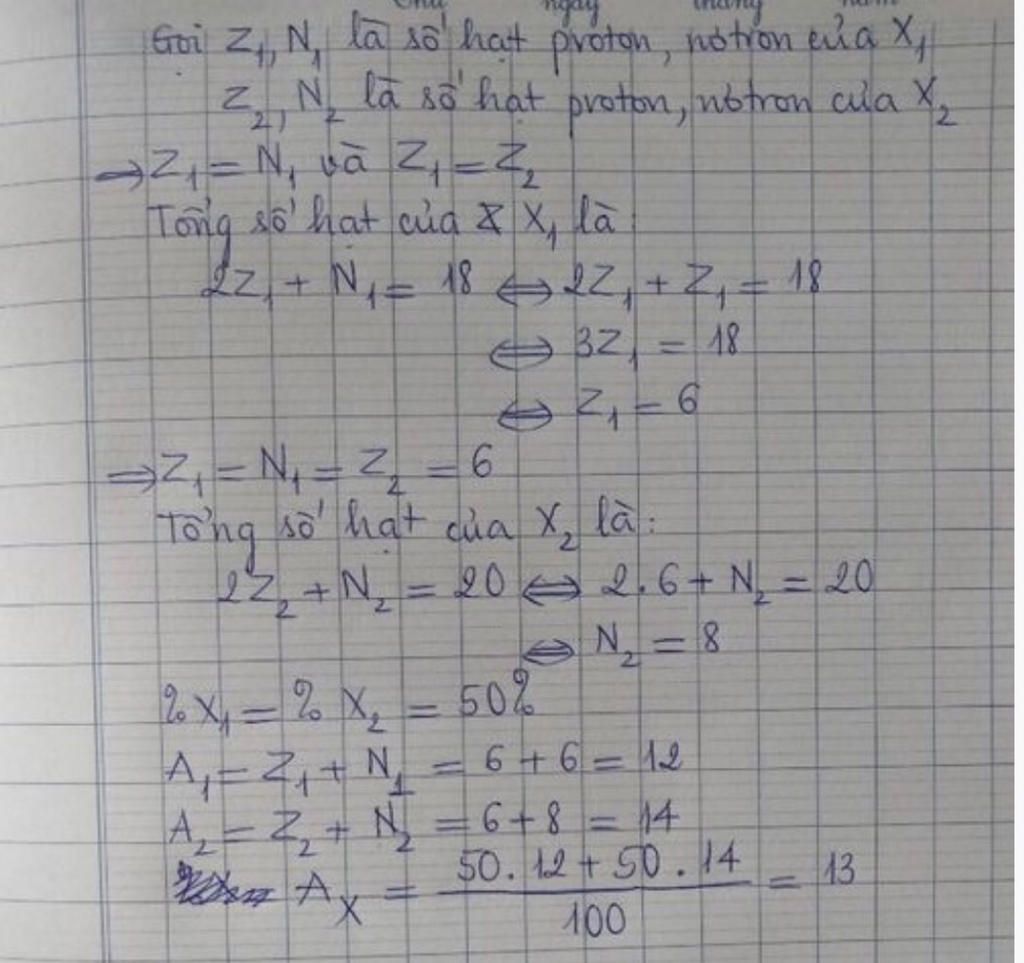 Thứ ngày tháng năm
Gọi Z₁, N₁ là số hạt proton, nơtron của X₁
Z₂, N₂ là số hạt proton, nơtron của X₂
⇒ Z₁ = N₁ và Z₁ = Z₂
Tổng số hạt của X₁ là:
2Z₁ + N₁ = 18 ⇔ 2Z₁ + Z₁ = 18
⇔ 3Z₁ = 18
⇔ Z₁ = 6
⇒ Z₁ = N₁ = Z₂ = 6
Tổng số hạt của X₂ là:
2Z₂ + N₂ = 20 ⇔ 2.6 + N₂ = 20
⇔ N₂ = 8
% X₁ = % X₂ = 50%
A₁ = Z₁ + N₁ = 6 + 6 = 12
A₂ = Z₂ + N₂ = 6 + 8 = 14
A_X = (50.12 + 50.14)/100 = 13